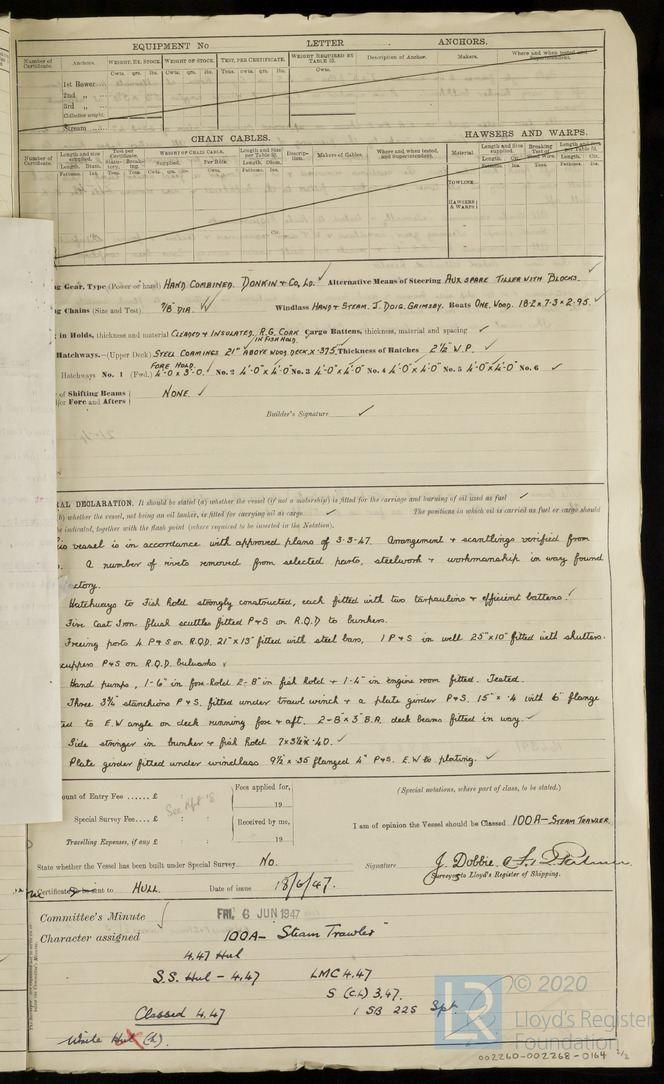 EQUIPMENT No LETTER ANCHORS.
Number of Certificate. Anchors. WEIGHT, EX. STOCK. WEIGHT OF STOCK. TEST, PER CERTIFICATE. WEIGHT REQUIRED BY TABLE 53. Description of Anchor. Makers. Where and when tested and Superintendent.
Cwts. qrs. lbs. Cwts. qrs. lbs. Tons. cwts. qrs. lbs. Cwts.
1st Bower
2nd „
3rd „
Collective weight.
Stream
CHAIN CABLES. HAWSERS AND WARPS.
Number of Certificate. Length and size supplied. Test per Certificate. WEIGHT OF CHAIN CABLE. Length and Size per Table 53. Description. Makers of Cables. Where and when tested, and Superintendent. Material Length and Size supplied. Breaking Test of Steel Wire. Length and Size per Table 53.
Supplied. Per Rule.
TOWLINE
HAWSERS & WARPS
g Gear, Type (Power or hand) HAND COMBINED. DONKIN & CO, LD. Alternative Means of Steering AUX SPARE TILLER WITH BLOCKS.
g Chains (Size and Test) 7/8" DIA. Windlass HAND & STEAM. J. DOIG. GRIMSBY. Boats ONE. WOOD. 18·2 x 7·3 x 2·95.
in Holds, thickness and material CLEADED & INSULATED. R.G. CORK IN FISH HOLD. Cargo Battens, thickness, material and spacing
Hatchways.—(Upper Deck) STEEL COAMINGS 21" ABOVE WOOD DECK x ·375. Thickness of Hatches 2½" W.P.
FORE HOLD.
Hatchways No. 1 (Fwd.) 4'-0 x 3'-0. No. 2 4'-0" x 4'-0" No. 3 4'-0" x 4'-0" No. 4 4'-0" x 4'-0" No. 5 4'-0" x 4'-0" No. 6
of Shifting Beams
for Fore and Afters NONE.
Builder's Signature
AL DECLARATION. It should be stated (a) whether the vessel (if not a motorship) is fitted for the carriage and burning of oil used as fuel
b) whether the vessel, not being an oil tanker, is fitted for carrying oil as cargo The positions in which oil is carried as fuel or cargo should
be indicated, together with the flash point (where required to be inserted in the Notation).
is vessel is in accordance with approved plans of 3·3·47. Arrangement & scantlings verified from
A number of rivets removed from selected parts, steelwork & workmanship in way found
ctory.
Hatchways to Fish hold strongly constructed, each fitted with two tarpaulins & efficient battens.
Five Cast Iron flush scuttles fitted P & S on R.Q.D to bunkers.
Freeing ports 4 P & S on R.Q.D. 21" x 13" fitted with steel bars, 1 P & S in well 25" x 10" fitted with shutters.
cuppers P & S on R.Q.D. bulwarks
Hand pumps, 1-6" in fore hold 2-8" in fish hold & 1-4" in engine room fitted. Tested.
Three 3¾" stanchions P & S. fitted under trawl winch & a plate girder P & S. 15" x ·4 with 6" flange
ed to E.W angle on deck running fore & aft. 2-8 x 3" B.A. deck beams fitted in way
Side stringer in bunker & fish hold 7 x 3½ x ·40.
Plate girder fitted under windlass 9½ x ·35 flanged 4" P & S. E.W to plating.
ount of Entry Fee ...... £ Fees applied for,
19
Special Survey Fee.... £ See Rpt 8 Received by me,
Travelling Expenses, if any £ 19
(Special notations, where part of class, to be stated.)
I am of opinion the Vessel should be Classed 100A — STEAM TRAWLER.
State whether the Vessel has been built under Special Survey No. Signature J. Dobbie
Surveyors to Lloyd's Register of Shipping.
Certificate to be sent to HULL. Date of issue 18/6/47.
Committee's Minute FRI. 6 JUN 1947
Character assigned 100A — "Steam Trawler"
4.47 Hul
S.S. Hul — 4.47 LMC 4.47
S (CL) 3.47.
Classed 4.47 1 SB 225 Spt.
White Hul (h).
© 2020
Lloyd's Register
Foundation
002260-002268-0164 2/2